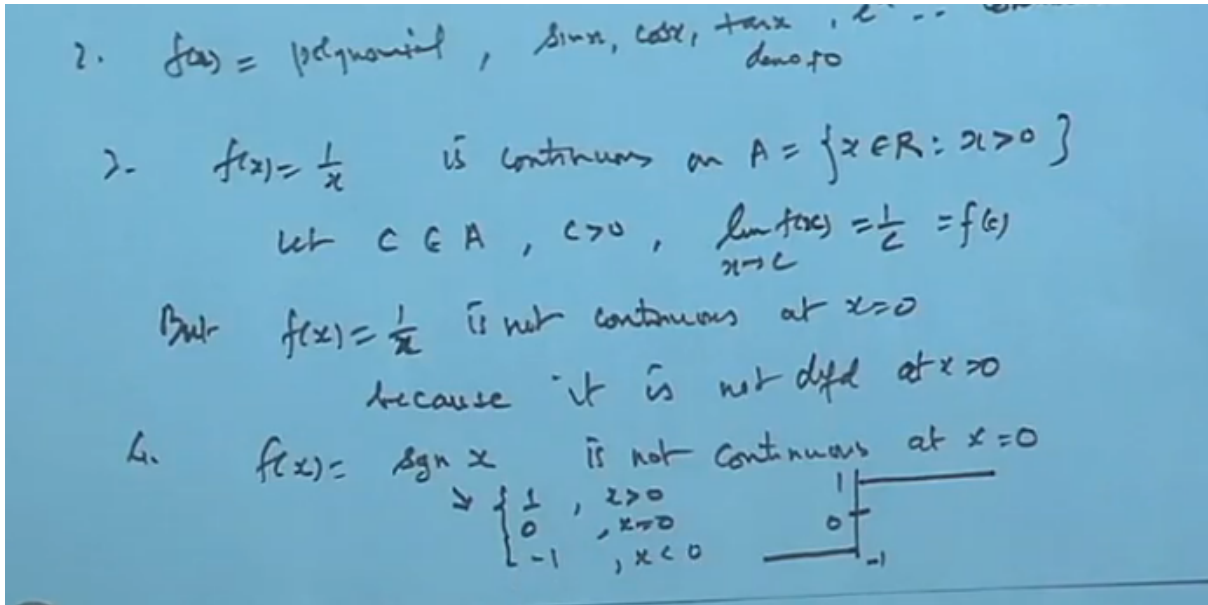 2. f(x) = polynomial, sinx, cosx, tanx, e
deno ≠0
3- f(x) = 1/x is continuous on A = {x ∈ R : x>0}
Let C ∈ A, C>0, lim x→c f(x) = 1/c = f(c)
But f(x) = 1/x is not continuous at x=0
because it is not dfd at x=0
4. f(x) = sgn x is not continuous at x=0
{ 1, x>0 1
0, x=0 0
-1, x<0 -1